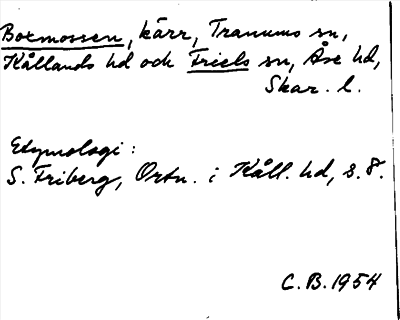 Boxmossen, kärr, Tranums sn,
Kållands hd och Friels sn, Åse hd,
Skar. l.
Etymologi:
S. Friberg, Ortn. i Kåll. hd, s. 8.
C. B. 1954